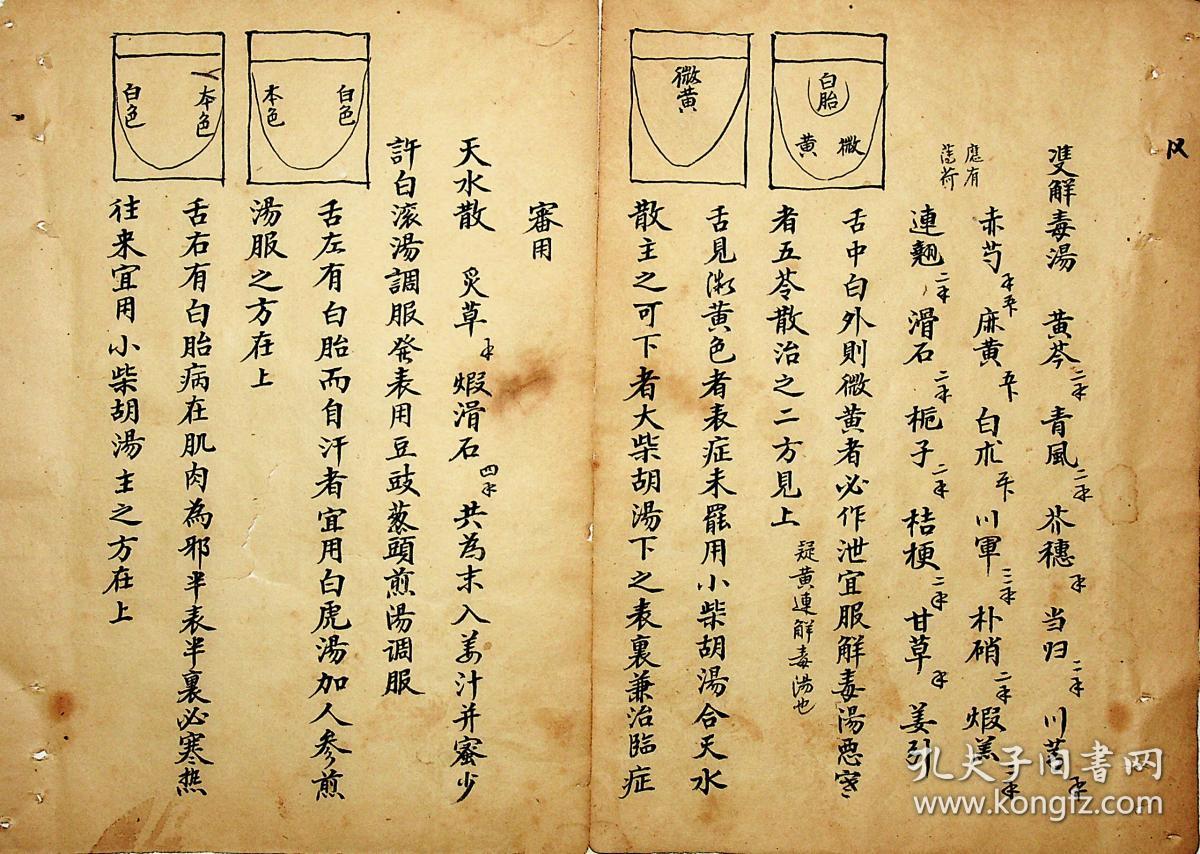 双解毒湯 黃芩二 青風二 芥穗 当归二 川芎
應有
薄荷
赤芍 麻黃 白朮 川軍三 朴硝二 煆羔二
連翹二 滑石二 梔子二 桔梗二 甘草 姜引
白胎
微
黃
舌中白外則微黃者必作泄宜服解毒湯惡寒
者五苓散治之二方見上 疑黃連解毒湯也
微黃
舌見微黃色者表症未罷用小柴胡湯合天水
散主之可下者大柴胡湯下之表裏兼治臨症
審用
天水散 炙草 煆滑石四 共為末入姜汁并蜜少
許白滚湯調服發表用豆豉葱頭煎湯调服
白色
本色
舌左有白胎而自汗者宜用白虎湯加人參煎
湯服之方在上
本色
白色
舌右有白胎病在肌肉為邪半表半裏必寒熱
往来宜用小柴胡湯主之方在上
孔夫子旧书网
www.kongfz.com